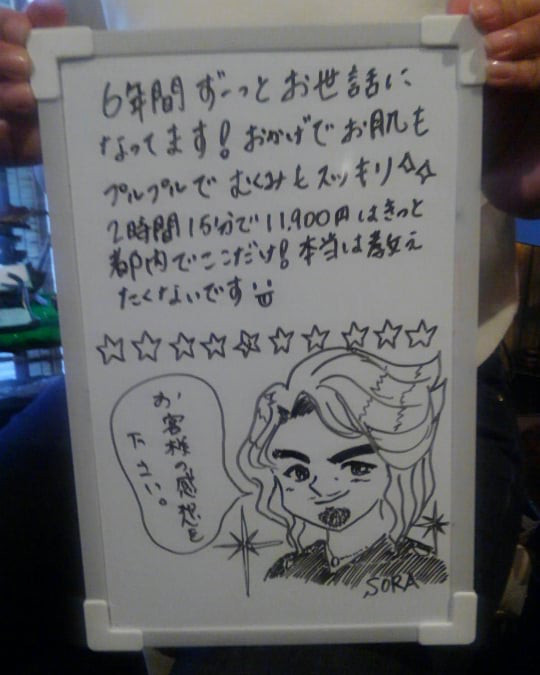 6年間 ずーっと お世話に
なってます！おかげでお肌も
プルプルで むくみもスッキリ☆☆
2時間15分で11,900円はきっと
都内でここだけ！本当は教え
たくないです
☆☆☆☆☆☆☆☆☆☆
お客様の感想を
下さい。
SORA